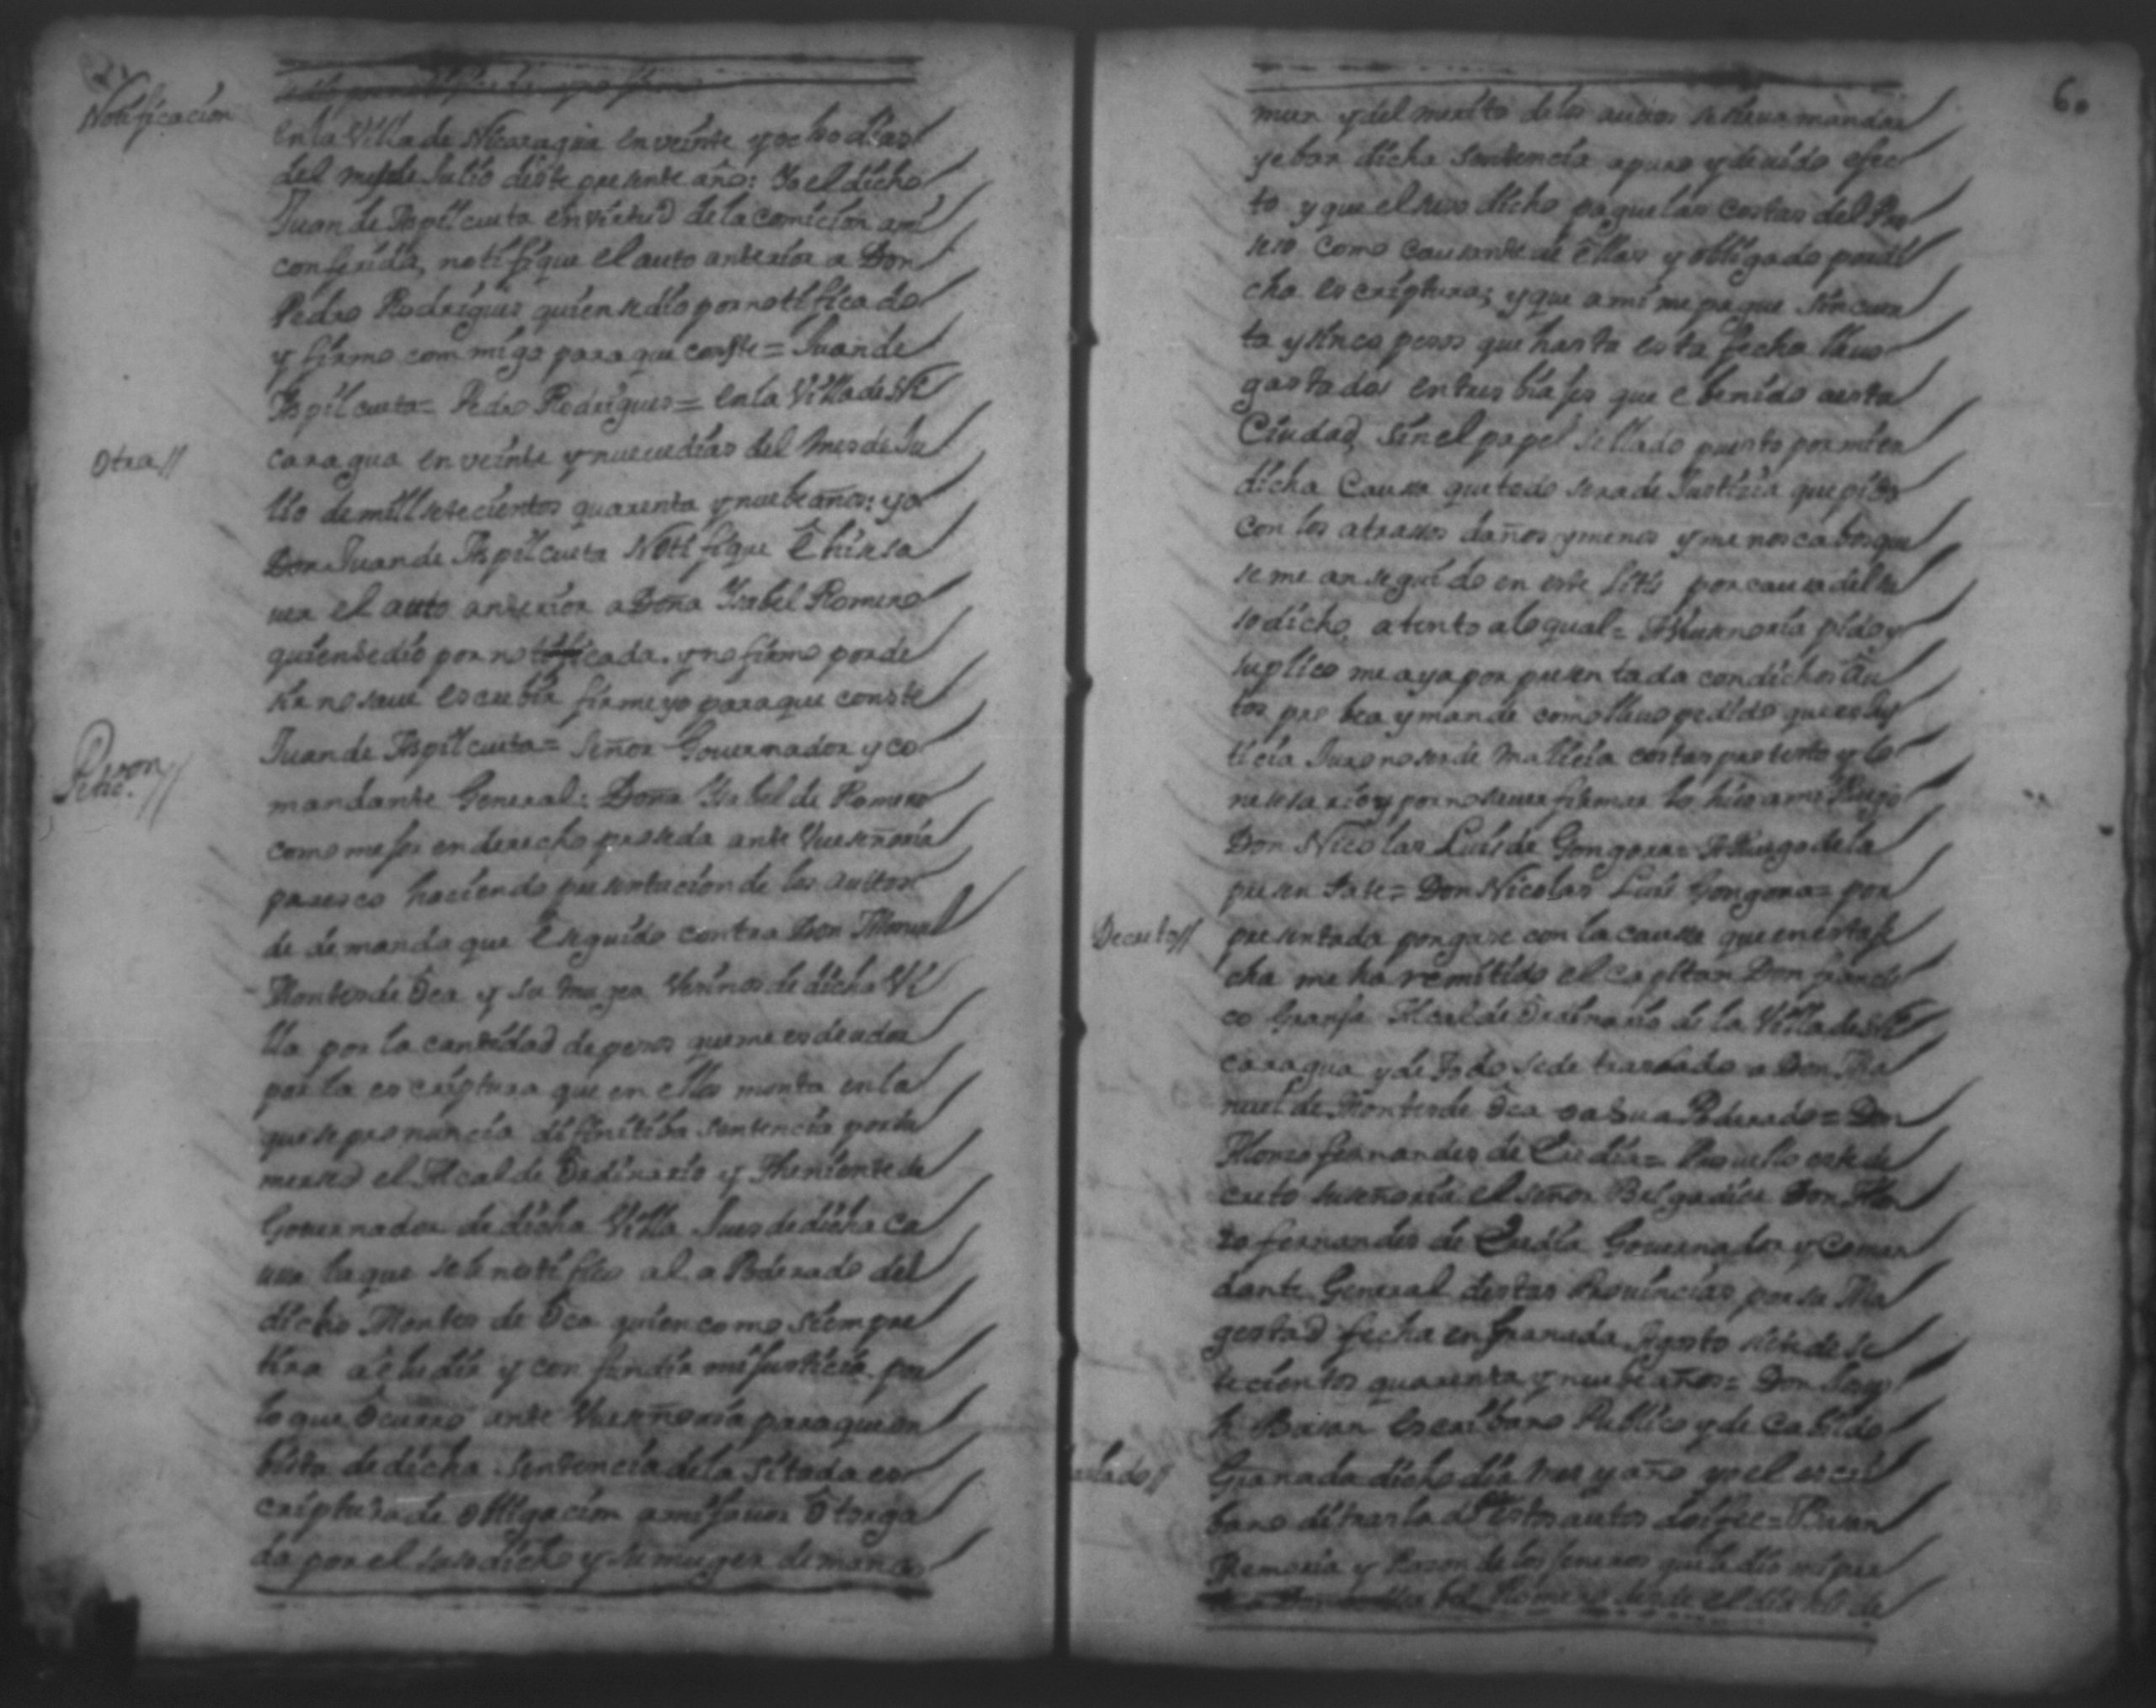 Notificacion
En la Villa de Nicaragua en veinte y ocho dias
del mes de Julio deste presente año: Yo el dicho
Juan de Aspilcueta en virtud de la comicion ami
conferida, notifique el auto anterior a Don
Pedro Rodrigues quien se dio por notificado
y firmo commigo para que conste = Juan de
Aspilcueta = Pedro Rodrigues = En la Villa de Ni
Otra//
caragua en veinte y nueve dias del mes de Ju
lio de mill setecientos quarenta y nuebe años: yo
Don Juan de Aspilcueta Notifique Ê hise sa
ver el auto anterior a Doña Ysabel Romero
quien se dio por notificada. y no firmo por de
sir no saver escrebir firme yo para que conste
Juan de Aspilcueta = Señor Governador y co
Peticion//
mandante General: Doña Ysabel de Romero
como mejor en derecho proseda ante Vueseñoria
paresco haciendo presentacion de los auttos
de demanda que Ê seguido contra Don Manuel
Montes de Ôca y su muger Vesinos de dicha Vi
lla por la cantidad de pesos que me es deudor
por la escriptura que en ellos monta en la
que se pronuncia difinitiba sentencia por su
merced el Alcalde Ôrdinario y Theniente de
Governador de dicha Villa Jues de dicha ca
usa la que se le notifico al apoderado del
dicho Montes de Ôca quien como siempre
tira a eludir y confundir mi justicia por
lo que Ôcurro ante Vueseñoria para que en
bista de dicha sentencia de la sitada es
criptura de obligacion a mi favor Ôtorga
da por el susodicho y su muger de man co
6.
mun y del merito de los autos se sirva mandar
yebar dicha sentencia apuro y devido efec
to y que el suso dicho pague las costas del Pro
seso como causante de Êllas y obligado por di
cha escriptura; y que a mi me pague sincuen
ta y sinco pesos que hasta esta fecha llevo
gastados en tres biajes que e benido a esta
Ciudad, sin el papel sellado puesto por mi en
dicha Causa que todo sera de Justicia que pido
con los atrasos daños y menos y menoscabos que
se me an seguido en este litis por causa del su
sodicho, atento a lo qual = A Vueseñoria pido y
suplico me aya por presentada con dichos Au
tos probea y mande como llevo pedido que es Jus
ticia Juro no ser de malicia costas protesto y lo
nesesario y por no saver firmar lo hiso a mi Ruego
Don Nicolas Luis de Gongora = A Ruego de la
presentase = Don Nicolas Luis Gongora = por
Decreto//
presentada pongase con la causa que en esta fe
cha me ha remitido el Capitan Don Francis
co Granja Alcalde Ôrdinario de la Villa de Ni
caragua y de todo se de traslado a Don Ma
nuel de Montes de Ôca o a su apoderado = Don
Alonso fernandes de Eredia = Proveyo este de
creto su señoria el señor Brigadier Don Alon
so fernandes de Eredia Governador y Coman
dante General destas Provincias por su Ma
gestad fecha en Granada Agosto siete de se
tecientos quarenta y nuebe años = Don
Basan Escribano Publico y de Cabildo
Granada dicho dia mes y año yo el escri
bano di traslado destos autos doi fee = Basan
Memoria y Rason de los generos que le dio mi